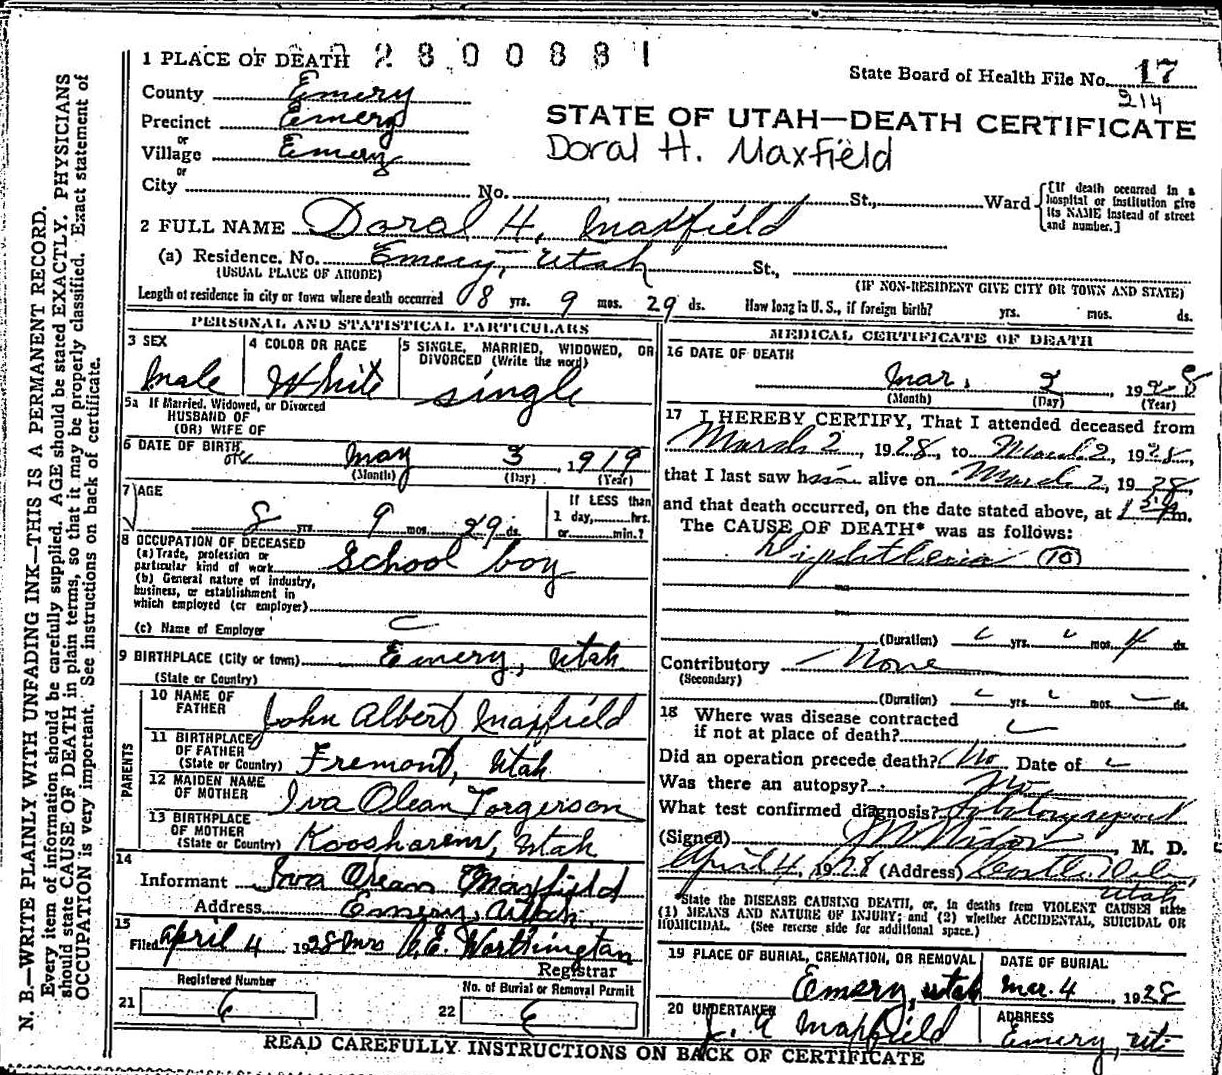 1 PLACE OF DEATH 2800881
State Board of Health File No. 17
214
County Emery
Precinct Emery
or
Village Emery
or
STATE OF UTAH—DEATH CERTIFICATE
Doral H. Maxfield
City No. St., Ward
[If death occurred in a hospital or institution give its NAME instead of street and number.]
2 FULL NAME Doral H. Maxfield
(a) Residence. No. Emery, Utah St.,
(USUAL PLACE OF ABODE) (IF NON-RESIDENT GIVE CITY OR TOWN AND STATE)
Length of residence in city or town where death occurred 8 yrs. 9 mos. 29 ds. How long in U. S., if foreign birth? yrs. mos. ds.
PERSONAL AND STATISTICAL PARTICULARS
3 SEX
Male
4 COLOR OR RACE
White
5 SINGLE, MARRIED, WIDOWED, OR DIVORCED (Write the word)
single
5a If Married, Widowed, or Divorced
HUSBAND OF
(OR) WIFE OF
6 DATE OF BIRTH May 3, 1919
(Month) (Day) (Year)
7 AGE
8 yrs. 9 mos. 29 ds.
If LESS than
1 day, hrs.
or min.?
8 OCCUPATION OF DECEASED
(a) Trade, profession or
particular kind of work School boy
(b) General nature of industry,
business, or establishment in
which employed (or employer)
(c) Name of Employer
9 BIRTHPLACE (City or town) Emery, Utah
(State or Country)
PARENTS
10 NAME OF
FATHER John Albert Maxfield
11 BIRTHPLACE
OF FATHER
(State or Country) Fremont, Utah
12 MAIDEN NAME
OF MOTHER Iva Olean Torgerson
13 BIRTHPLACE
OF MOTHER
(State or Country) Koosharem, Utah
14
Informant Iva Olean Maxfield
Address Emery, Utah.
15
Filed April 4 1928 Mrs. Worthington
Registrar
Registered Number
21 6
No. of Burial or Removal Permit
22 6
MEDICAL CERTIFICATE OF DEATH
16 DATE OF DEATH
Mar. 2 1928
(Month) (Day) (Year)
17 I HEREBY CERTIFY, That I attended deceased from
March 2, 1928, to March 2, 1928,
that I last saw him alive on March 2, 1928,
and that death occurred, on the date stated above, at m.
The CAUSE OF DEATH* was as follows:
Diphtheria (10)
(Duration) yrs. mos. 4 ds.
Contributory None
(Secondary)
(Duration) yrs. mos. ds.
18 Where was disease contracted
if not at place of death?
Did an operation precede death? No Date of
Was there an autopsy? No
What test confirmed diagnosis? report
(Signed) M. D.
April 4, 1928 (Address) Castle Dale,
Utah
*State the DISEASE CAUSING DEATH, or, in deaths from VIOLENT CAUSES state
(1) MEANS AND NATURE OF INJURY; and (2) whether ACCIDENTAL, SUICIDAL OR
HOMICIDAL. (See reverse side for additional space.)
19 PLACE OF BURIAL, CREMATION, OR REMOVAL
Emery, Utah
DATE OF BURIAL
Mar. 4, 1928
20 UNDERTAKER
J. A. Maxfield
ADDRESS
Emery, Ut.
READ CAREFULLY INSTRUCTIONS ON BACK OF CERTIFICATE
N. B.—WRITE PLAINLY WITH UNFADING INK—THIS IS A PERMANENT RECORD.
Every item of information should be carefully supplied. AGE should be stated EXACTLY. PHYSICIANS
should state CAUSE OF DEATH in plain terms, so that it may be properly classified. Exact statement of
OCCUPATION is very important. See instructions on back of certificate.